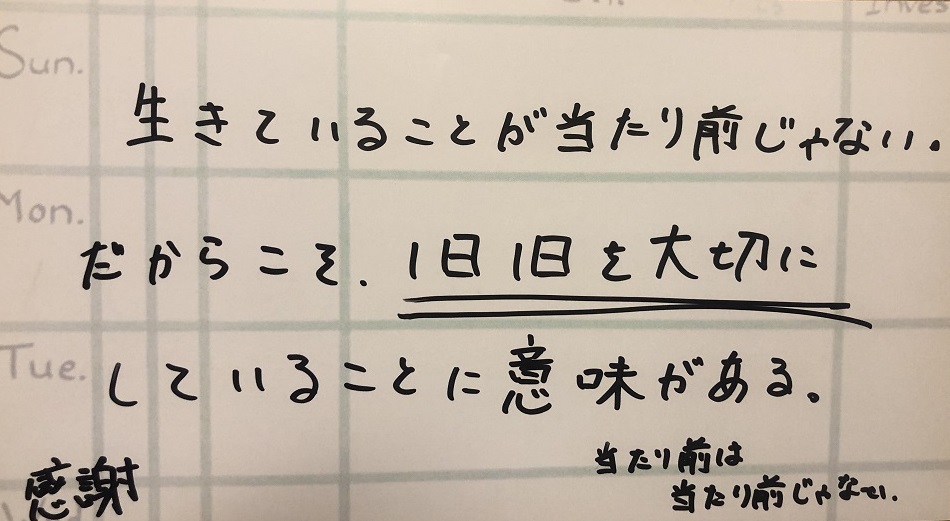 Inves
Sun.
生きていることが当たり前じゃない.
Mon.
だからこそ.1日1日を大切に
Tue.
していることに意味がある。
当たり前は
感謝
当たり前じゃない.